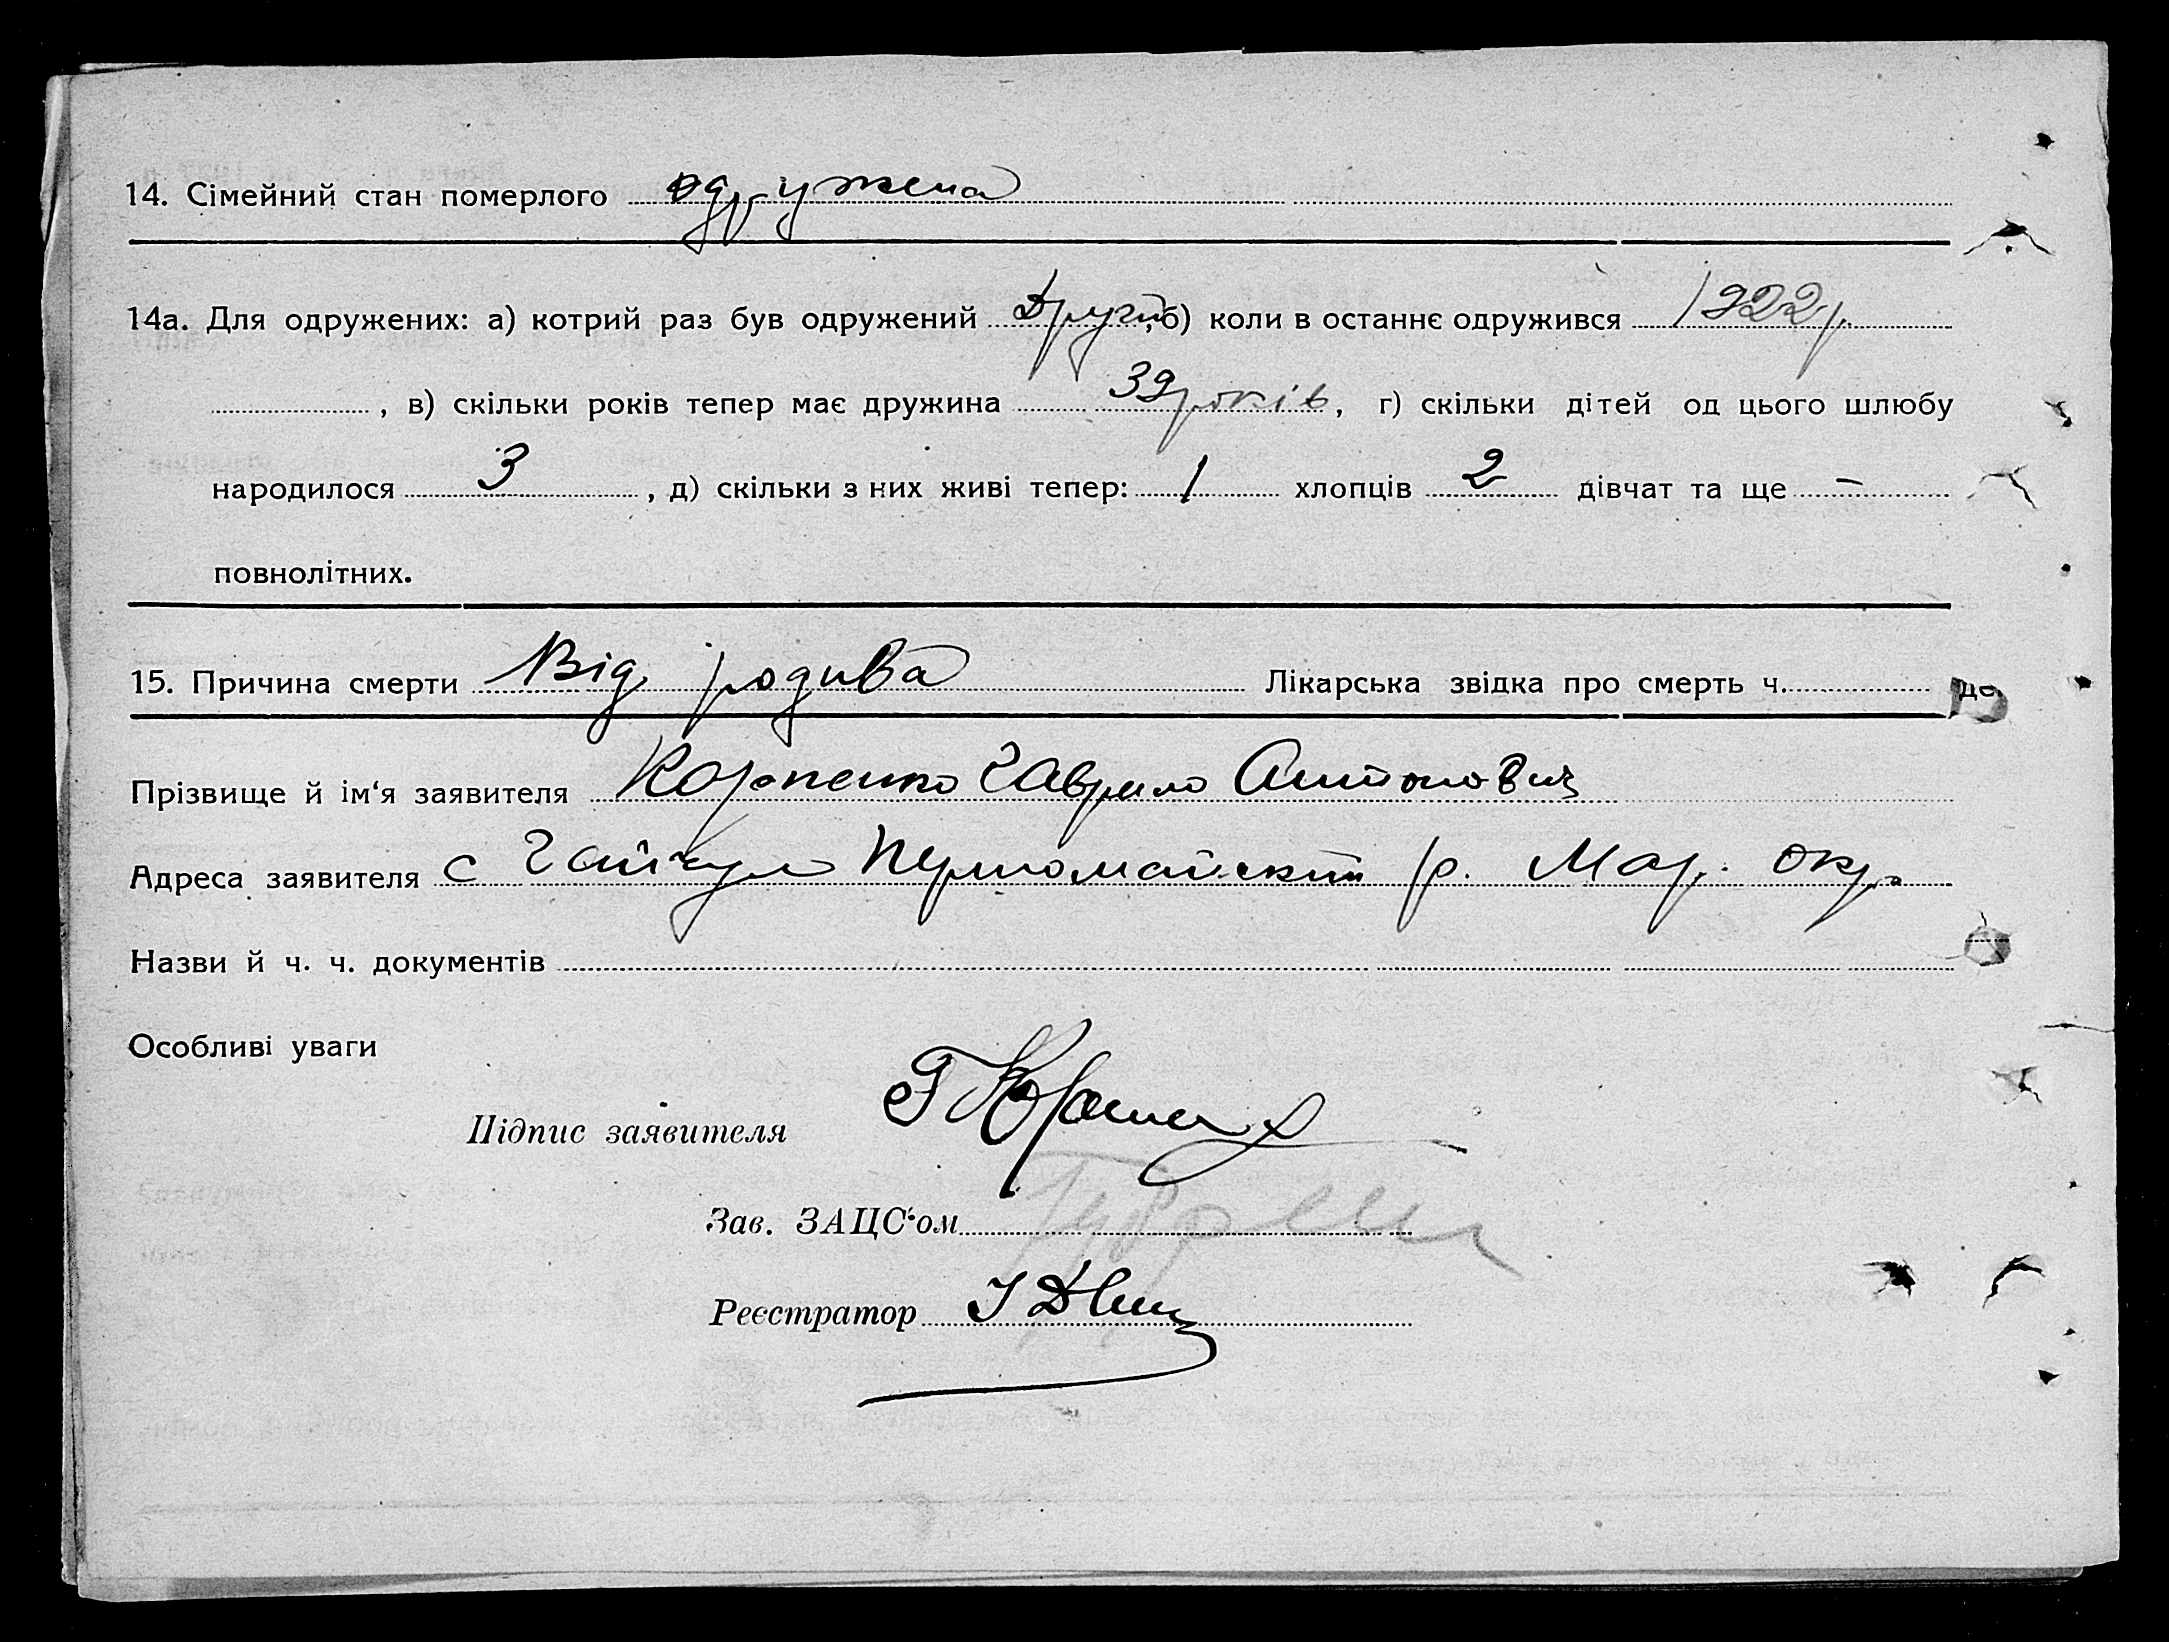 14. Сімейний стан померлого одружена
14а. Для одружених: а) котрий раз був одружений Другий, б) коли в останнє одружився 1922 р.
, в) скільки років тепер має дружина 39 років, г) скільки дітей од цього шлюбу
народилося 3, д) скільки з них живі тепер: 1 хлопців 2 дівчат та ще –
повнолітних.
15. Причина смерти Від родива Лікарська звідка про смерть ч. де
Прізвище й ім‘я заявителя Корпенко Гаврило Антонович
Адреса заявителя с Гайчул Р. Мар. окр.
Назви й ч. ч. документів
Особливі уваги
Підпис заявителя
Зав. ЗАЦС‘ом
Реєстратор